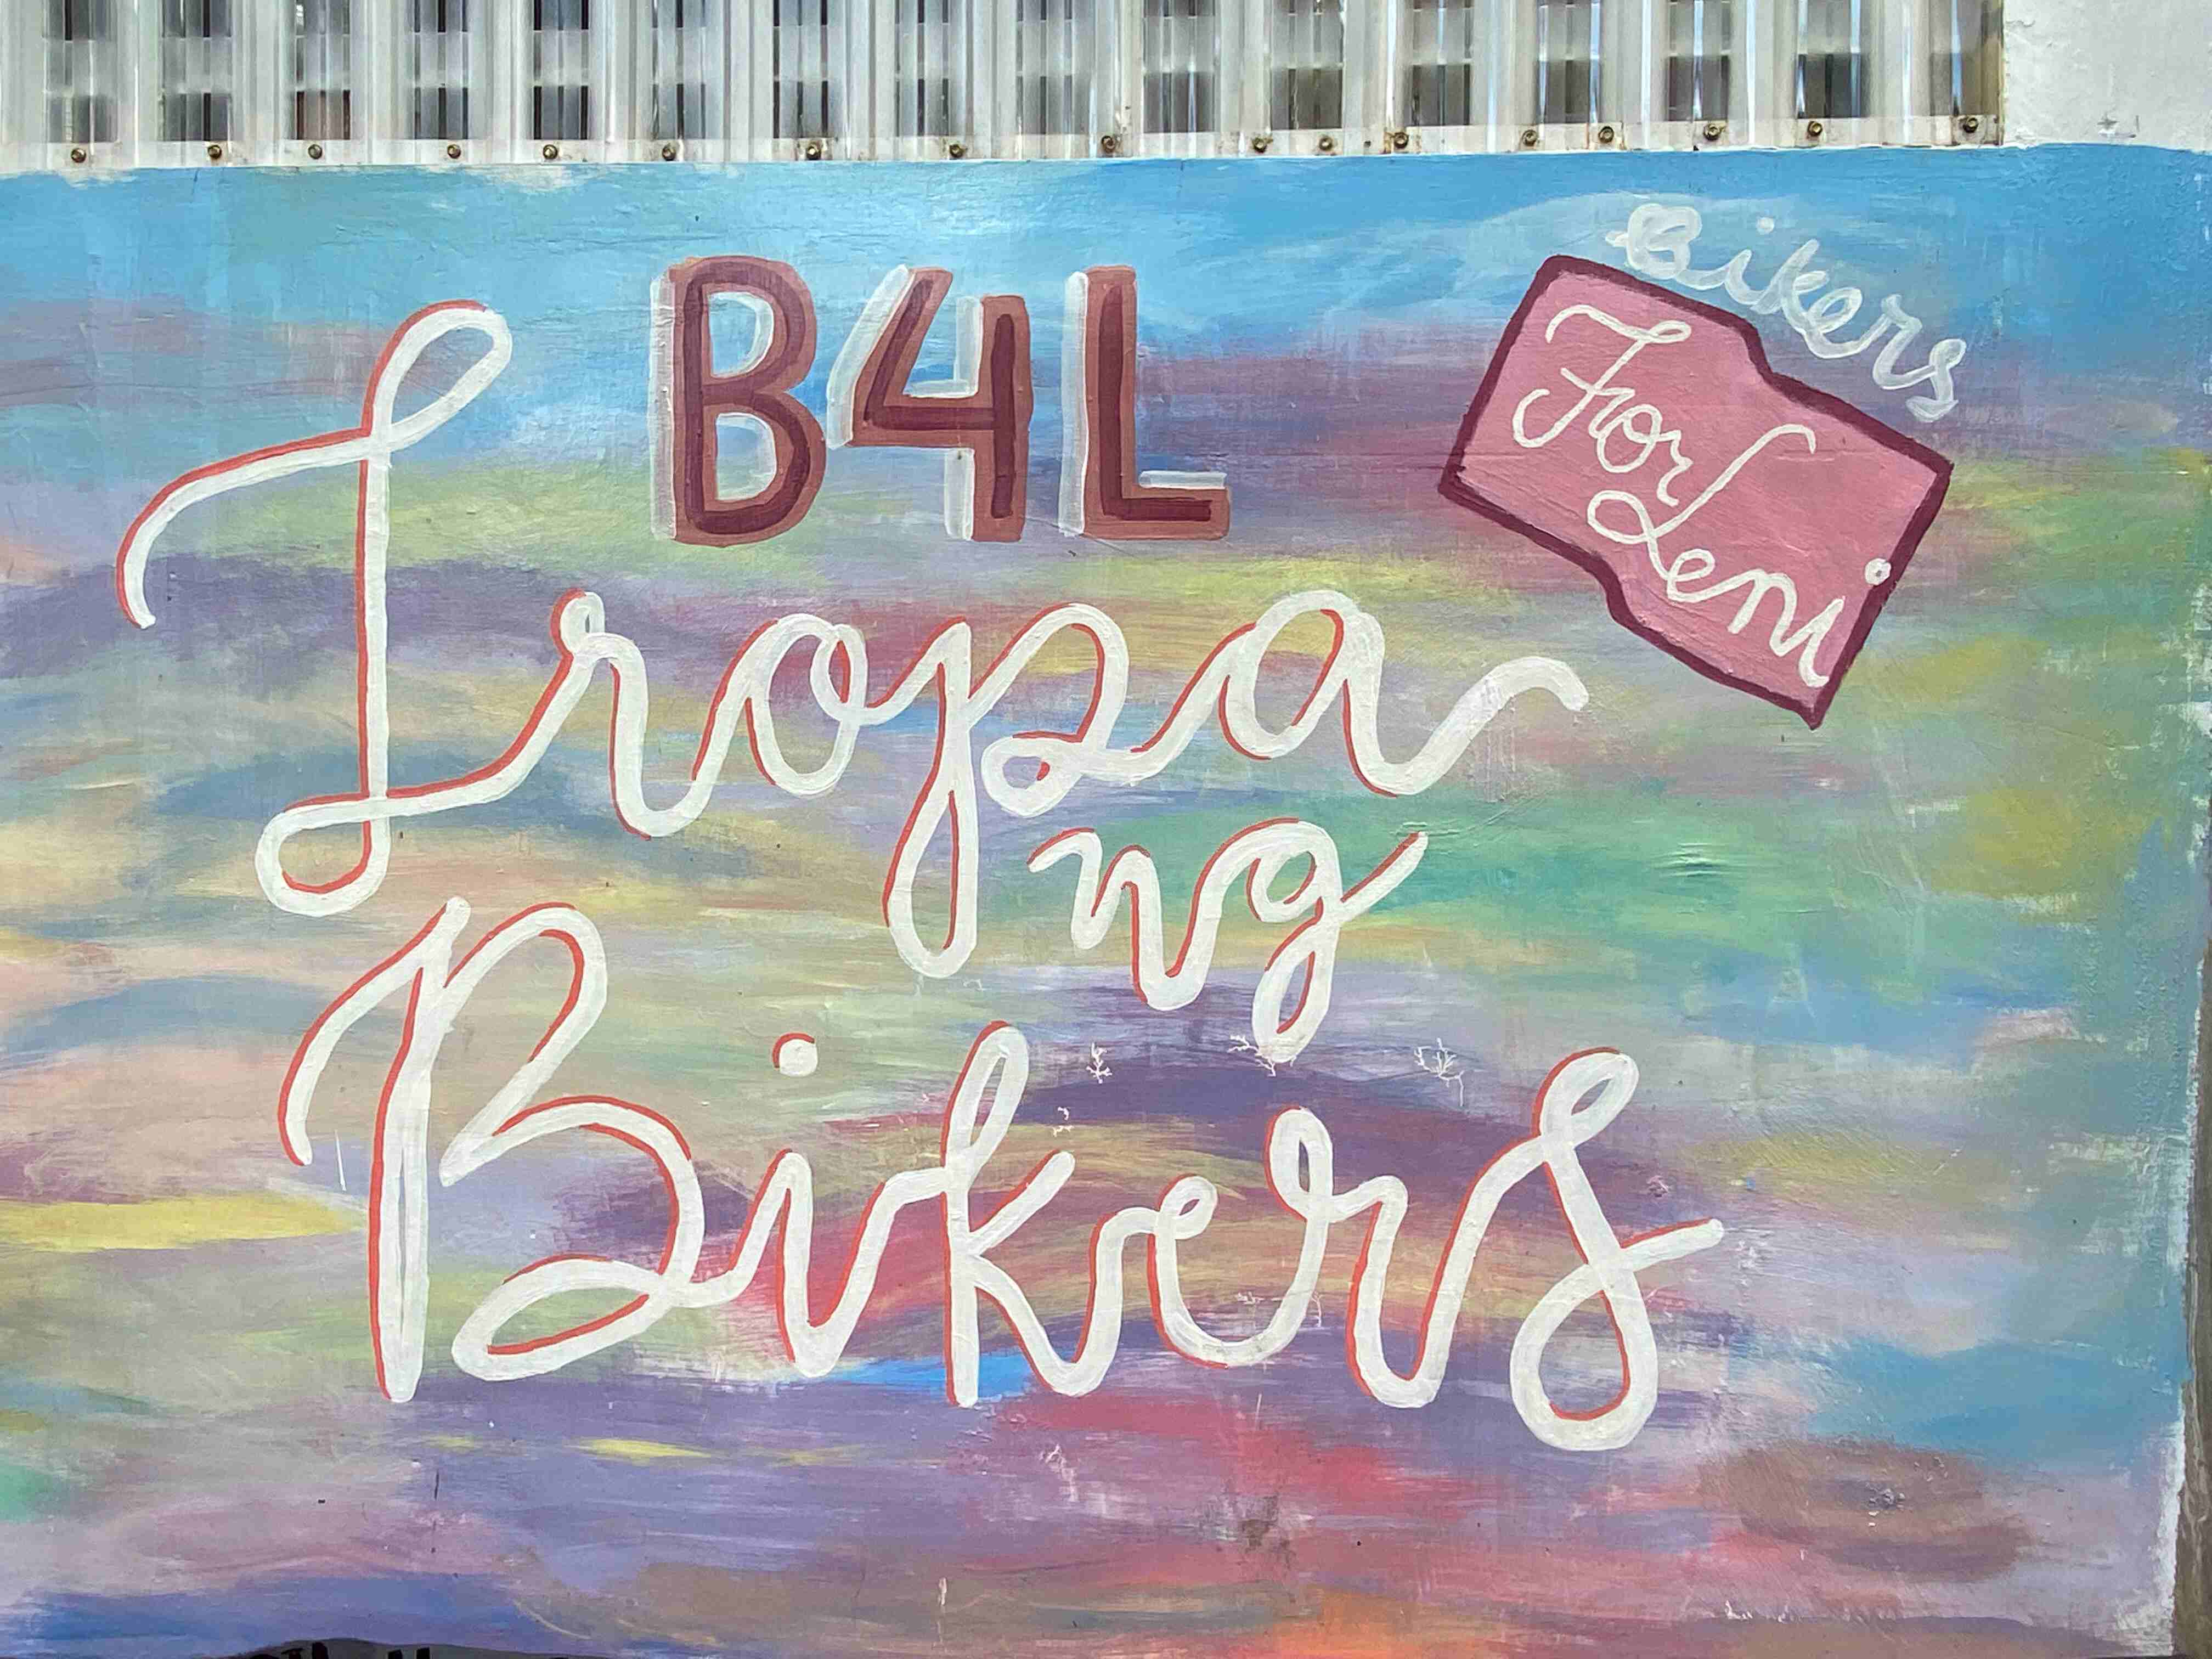 B4L
Bikers
For
Leni
Tropa
ng
Bikers